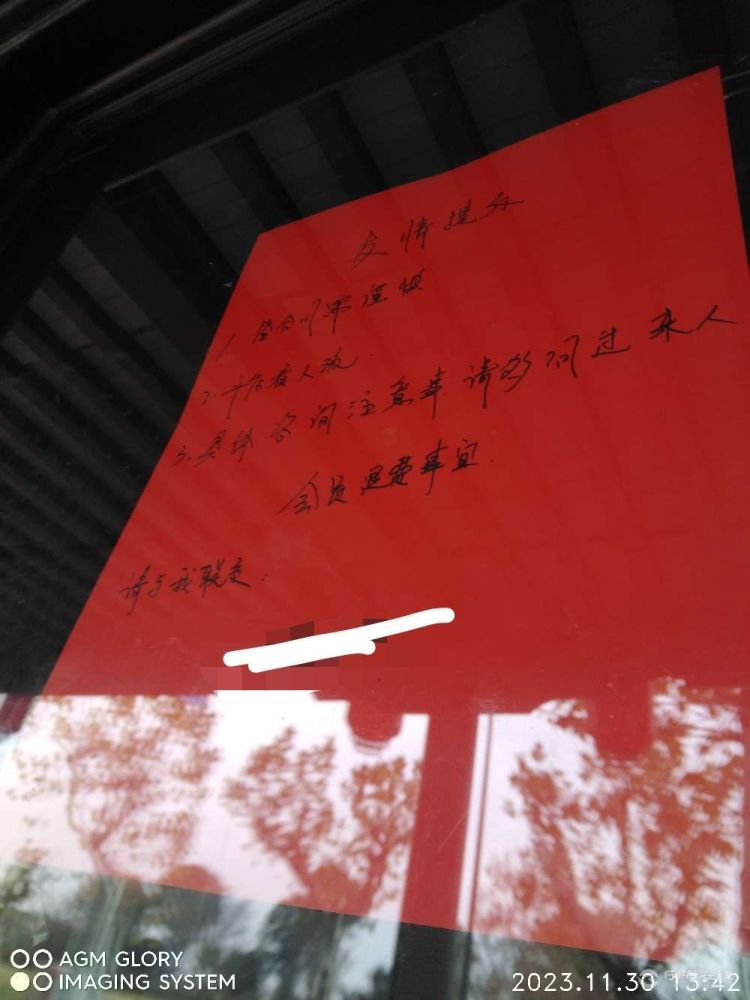 友情提示
1. 签合同需谨慎
2. 开店看人流.
3. 具体咨询注意事请多问过来人
会员退费事宜.
请与我联交:
AGM GLORY
IMAGING SYSTEM
2023.11.30 13:42